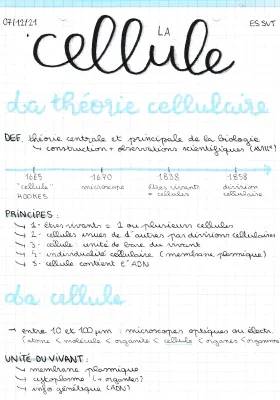 07/12/21
LA
ES SVT
cellule
La théorie cellulaire
DEF. théorie centrale et principale de la biologie
↳ construction + observations scientifiques
1665 1670 1838 1858
"cellule" microscope êtres vivants division
HOOKES = cellules cellulaire
PRINCIPES :
↳ 1- êtres vivants = 1 ou plusieurs cellules
↳ 2- cellules issues de d'autres par divisions cellulaires
↳ 3- cellule : unité de base du vivant
↳ 4- individualité cellulaire (membrane plasmique)
↳ 5- cellule contient l'ADN
La cellule
→ entre 10 et 100 μm : microscopes optiques ou électr.
(atome < molécule < organite < cellule < organes < organisme
UNITÉ DU VIVANT :
↳ membrane plasmique
↳ cytoplasme (+ organites)
↳ info génétique (ADN)